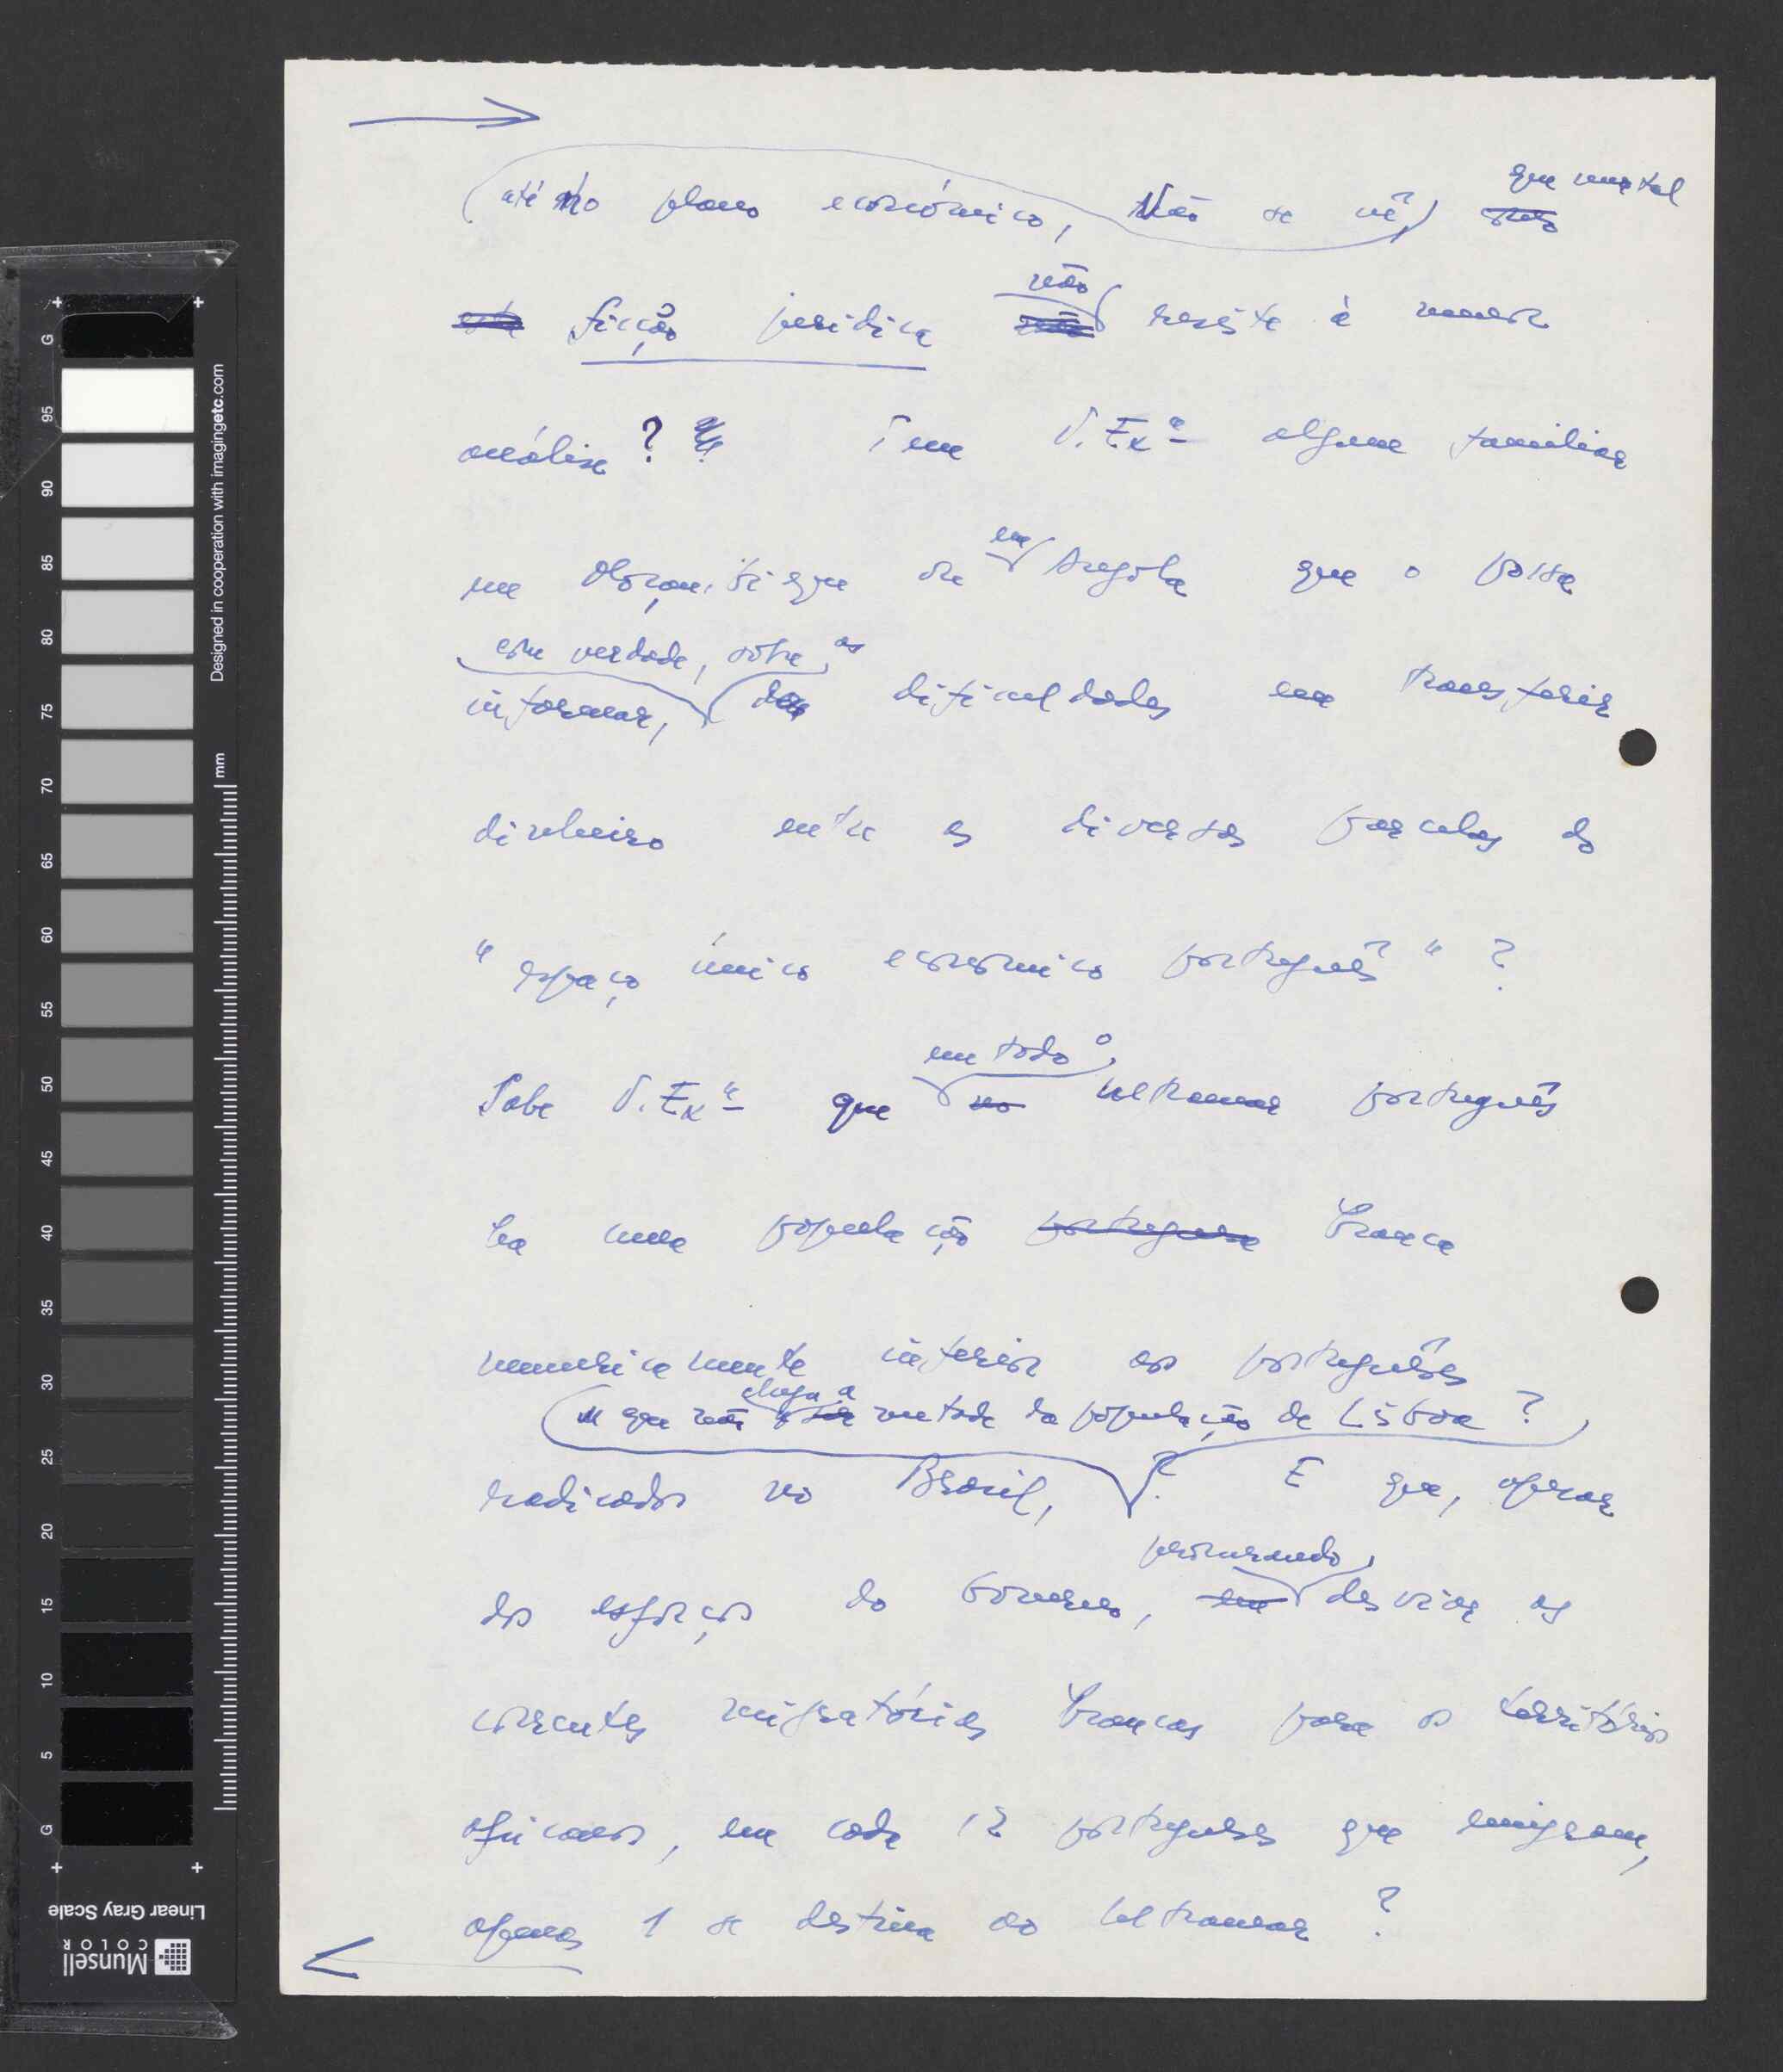 até no plano económico, Não se vê, que uma tal
ficção jurídica não resiste à menor
análise? Tem V. Exª algum familiar
em Moçambique ou em Angola que o possa
com verdade, sobre as
informar, dificuldades em transferir
dinheiro entre as diversas parcelas do
"espaço único economico português"?
em todo o
Sabe V. Exª que no ultramar português
ha uma população portuguesa branca
numericamente inferior aos portugueses
e que não chega a metade da população de Lisboa?
radicados no Brasil,? E que, apesar
procurando
dos esforços do Governo, em desviar as
correntes migratórias brancas para os territórios
africanos, em cada 12 portugueses que emigram,
apenas 1 se destina ao ultramar?
Designed in cooperation with imagingetc.com
mm
G 95 90 85 80 75 70 65 60 55 50 45 40 35 30 25 20 15 10 5 G
Linear Gray Scale
Munsell
COLOR